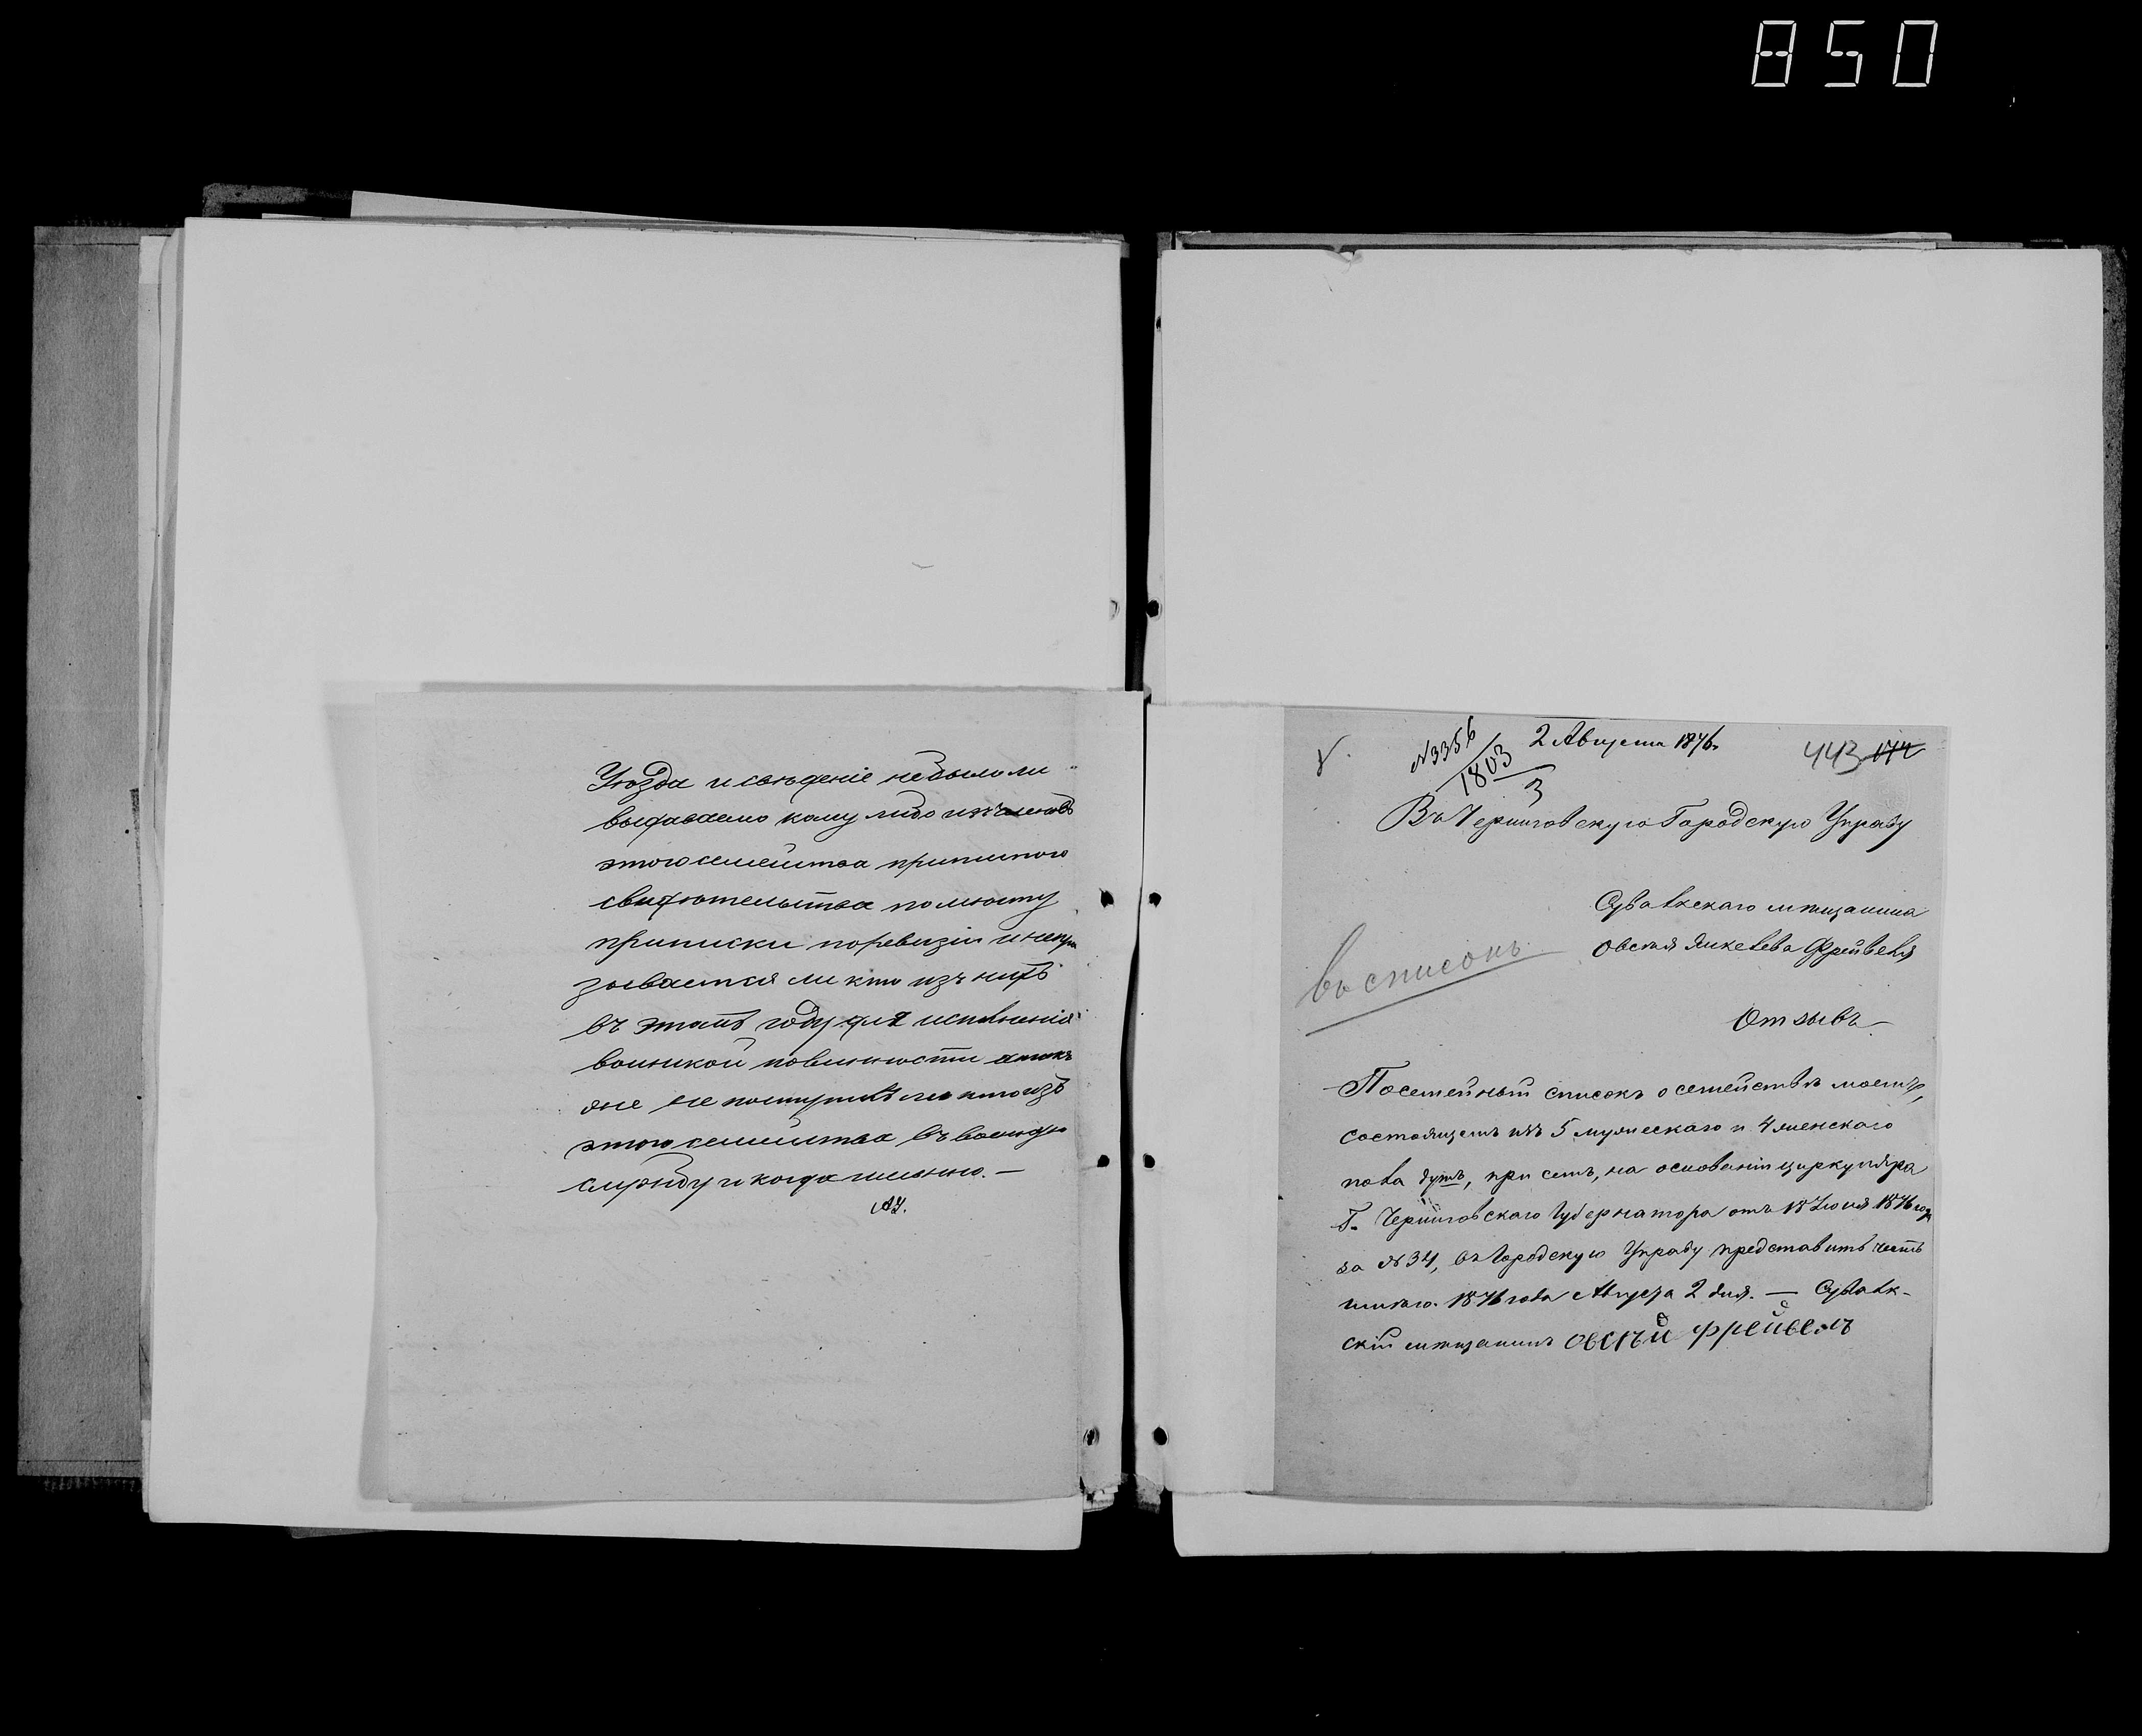 850
Уѣзда и свѣденіе небыло ли
выдаваемо кому либо изъ членовъ
этого семейства приписного
свидѣтельства по мѣсту
приписки по ревизіи и неока
зывается ли кто изъ нихъ
въ этомъ году для исполненія
воинской повинности а так
же не поступилъ ли кто изъ
этого семейства въ военную
службу и когда именно. —
443 172
№3356 2 Августа 1876.
1803
3
Въ Черниговскую Городскую Управу
Сувалкскаго мѣщанина
Овсѣя Янкелева Фрейвеля
въ списокъ
Отзывъ
Посемейный списокъ о семействѣ моемъ,
состоящемъ изъ 5 мужескаго и 4 женскаго
пола душъ, при семъ, на основаніи циркуляра
Г. Черниговскаго Губернатора отъ 18 Іюня 1876 года
за №34, въ Городскую Управу представить честь
имѣю. 1876 года Августа 2 дня. — Сувалк-
скій мѣщанинъ Овсѣй Фрейвелъ